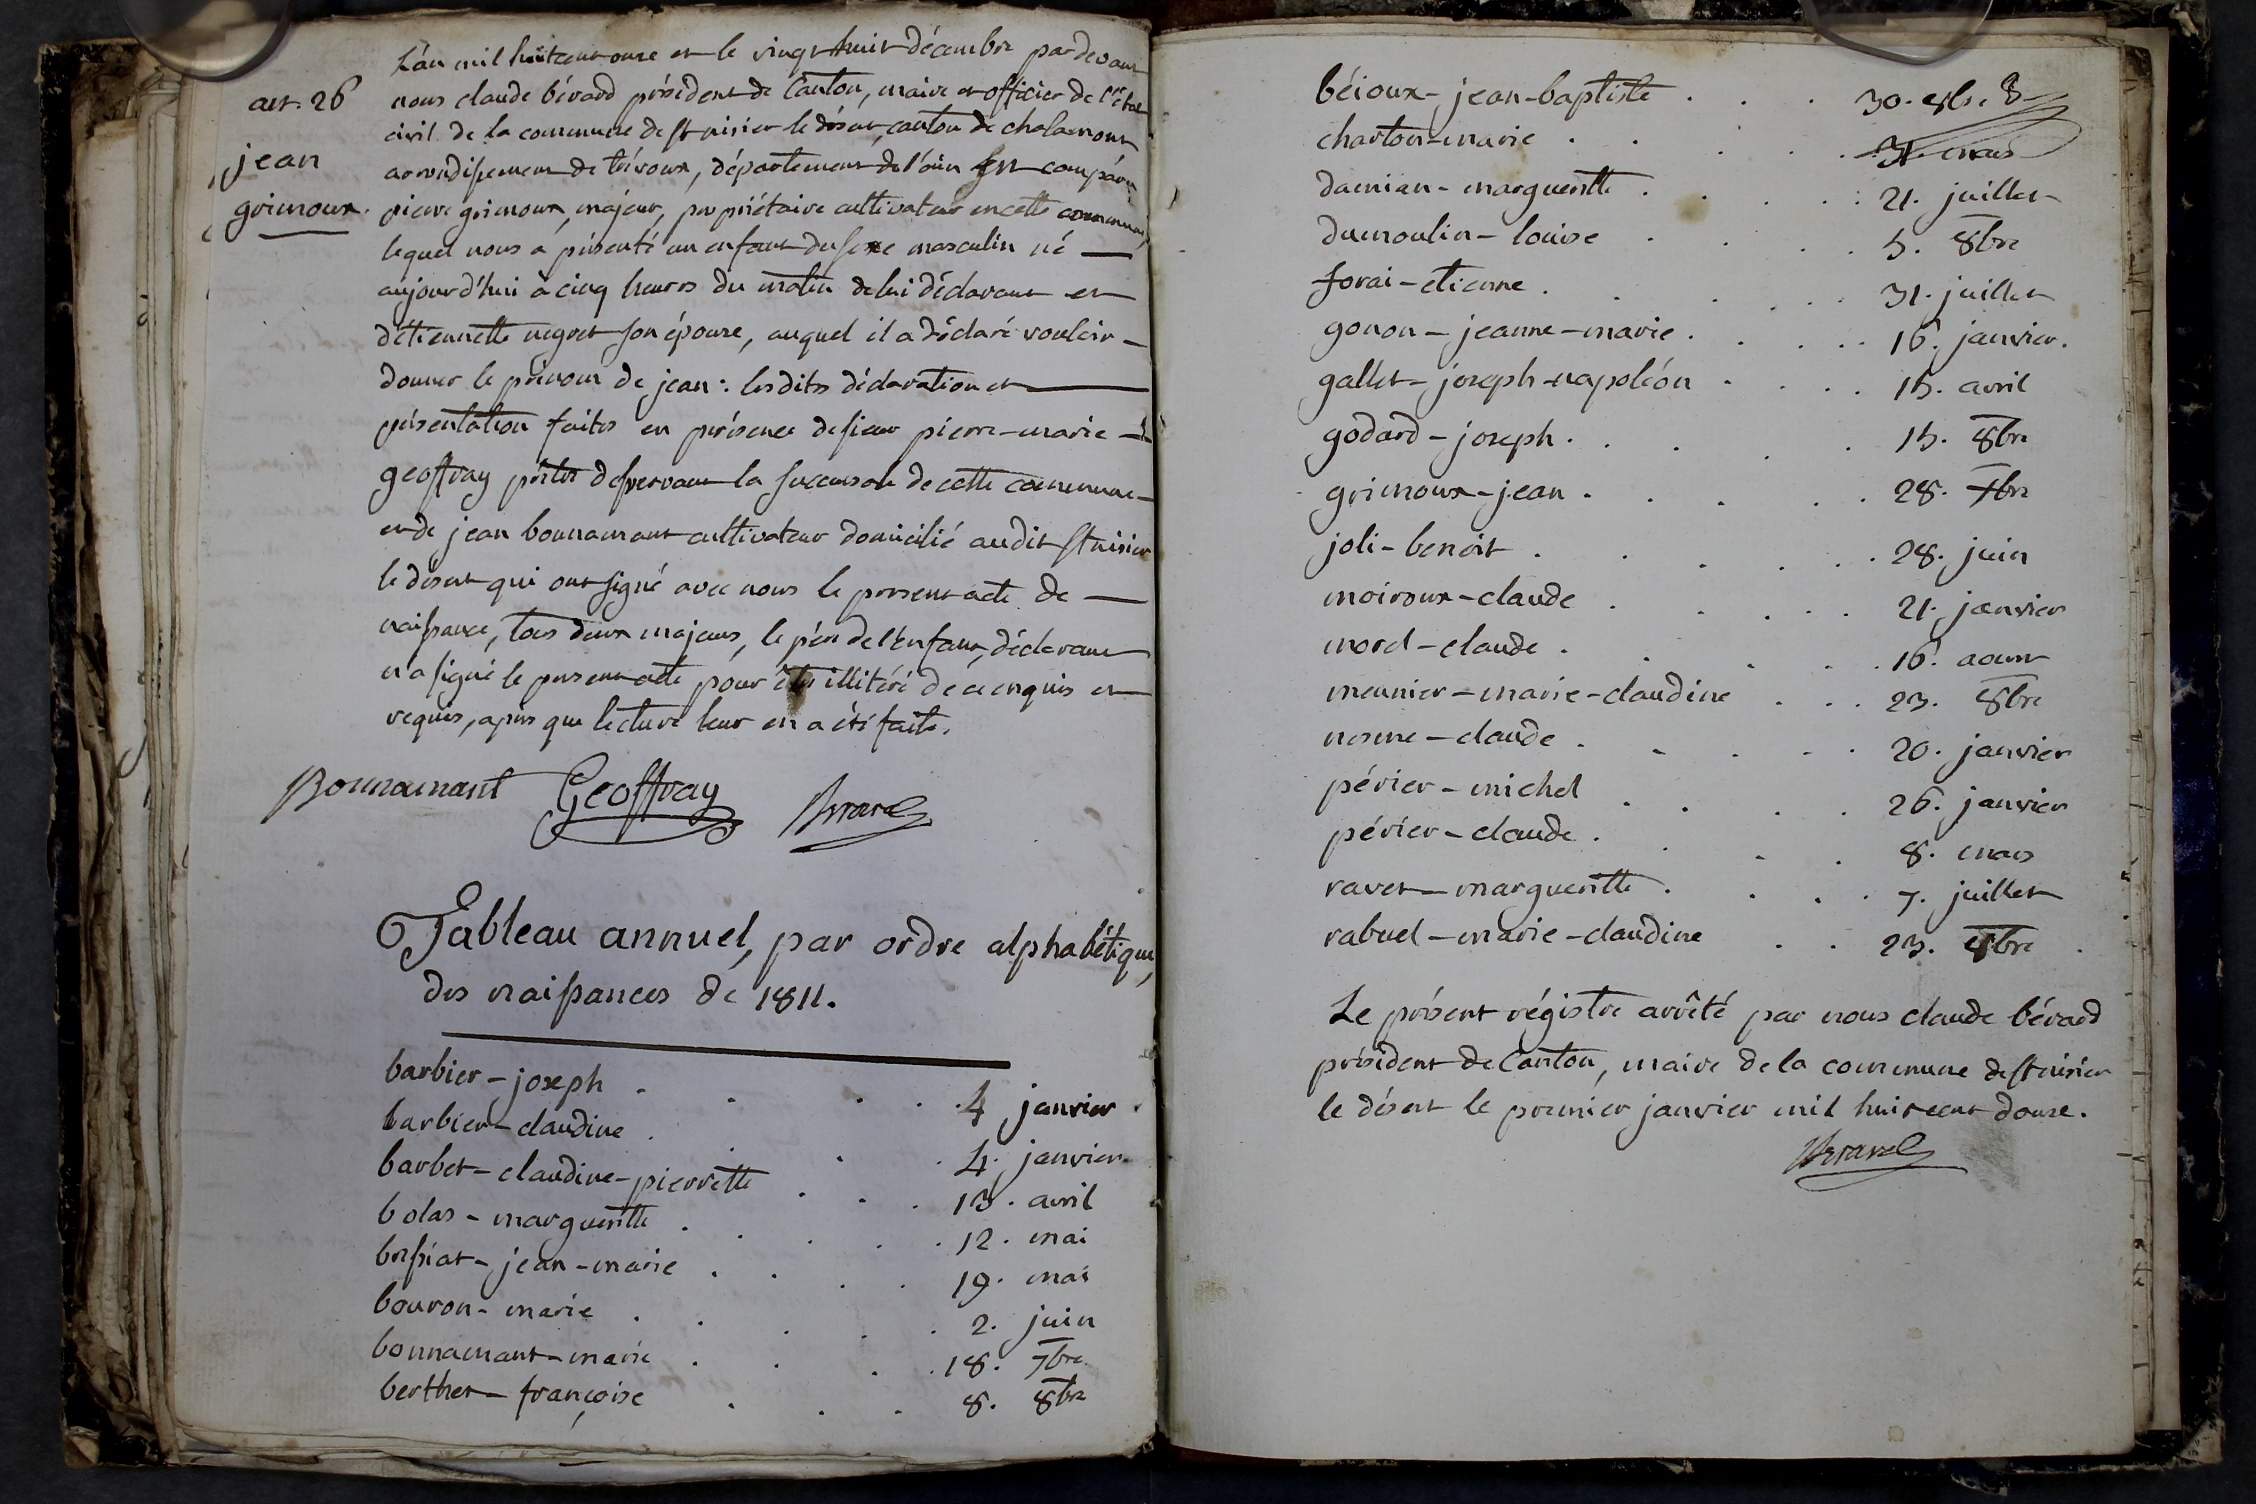 L'an mil huit cent onze et le vingt huit décembre par devant
nous claude bérard président de Canton, maire et officier de l'état
civil de la commune de st nisier le désert, canton de chalamont
arrondissement de trévoux, département de l'ain est comparu
pierre grimoux, majeur, propriétaire cultivateur en cette commune,
lequel nous a présenté un enfant du sexe masculin né
aujourd'hui à cinq heures du matin de lui déclarant et
d'étiennette negret son épouse, auquel il a déclaré vouloir
donner le prénom de jean : lesdites déclaration et
présentation faites en présence de sieur pierre-marie
geoffray prêtre desservant la succursale de cette commune
et de jean bonnamant cultivateur domicilié audit st nisier
le désert qui ont signé avec nous le présent acte de
naissance, tous deux majeurs, le père de l'enfant, déclarant
n'a signé le présent acte pour être illitéré de ce enquis et
requis, après que lecture leur en a été faite.
art. 26
jean
grimoux.
Bonnamant Geoffray Berard
Tableau annuel, par ordre alphabétique,
des naissances de 1811.
barbier-joseph . . . . 4 janvier
barbier-claudine . . . . 4. janvier
barbet-claudine-pierrette . . . 13. avril
bolas-margueritte . . . . 12. mai
bressiat-jean-marie . . . . 19. mai
bouron-marie . . . . 2. juin
bonnamant-marie . . . . 18. 7bre
berthet-françoise . . . 8. 8bre
béioux-jean-baptiste . . . 30. 8b.
charton-marie . . . . 31. mars
damian-margueritte . . . . 21. juillet
dumoulin-louise . . . . 5. 8bre
forai-etienne . . . . 31. juillet
gonon-jeanne-marie . . . . 16. janvier.
gallet-joseph-napoléon . . . . 15. avril
godard-joseph . . . . 15. 8bre
grimoux-jean . . . . 28. xbre
joli-benoit . . . . 28. juin
moiroux-claude . . . . 21. janvier
morel-claude . . . . 16. aoust
meunier-marie-claudine . . . 23. 8bre
nesme-claude . . . . 20. janvier
périer-michel . . . . 26. janvier
périer-claude . . . . 8. mars
ravet-margueritte . . . . 7. juillet
rabuel-marie-claudine . . 23. 8bre
Le présent régistre arrêté par nous claude bérard
président de Canton, maire de la commune de st nisier
le désert le premier janvier mil huit cent douze.
Berard